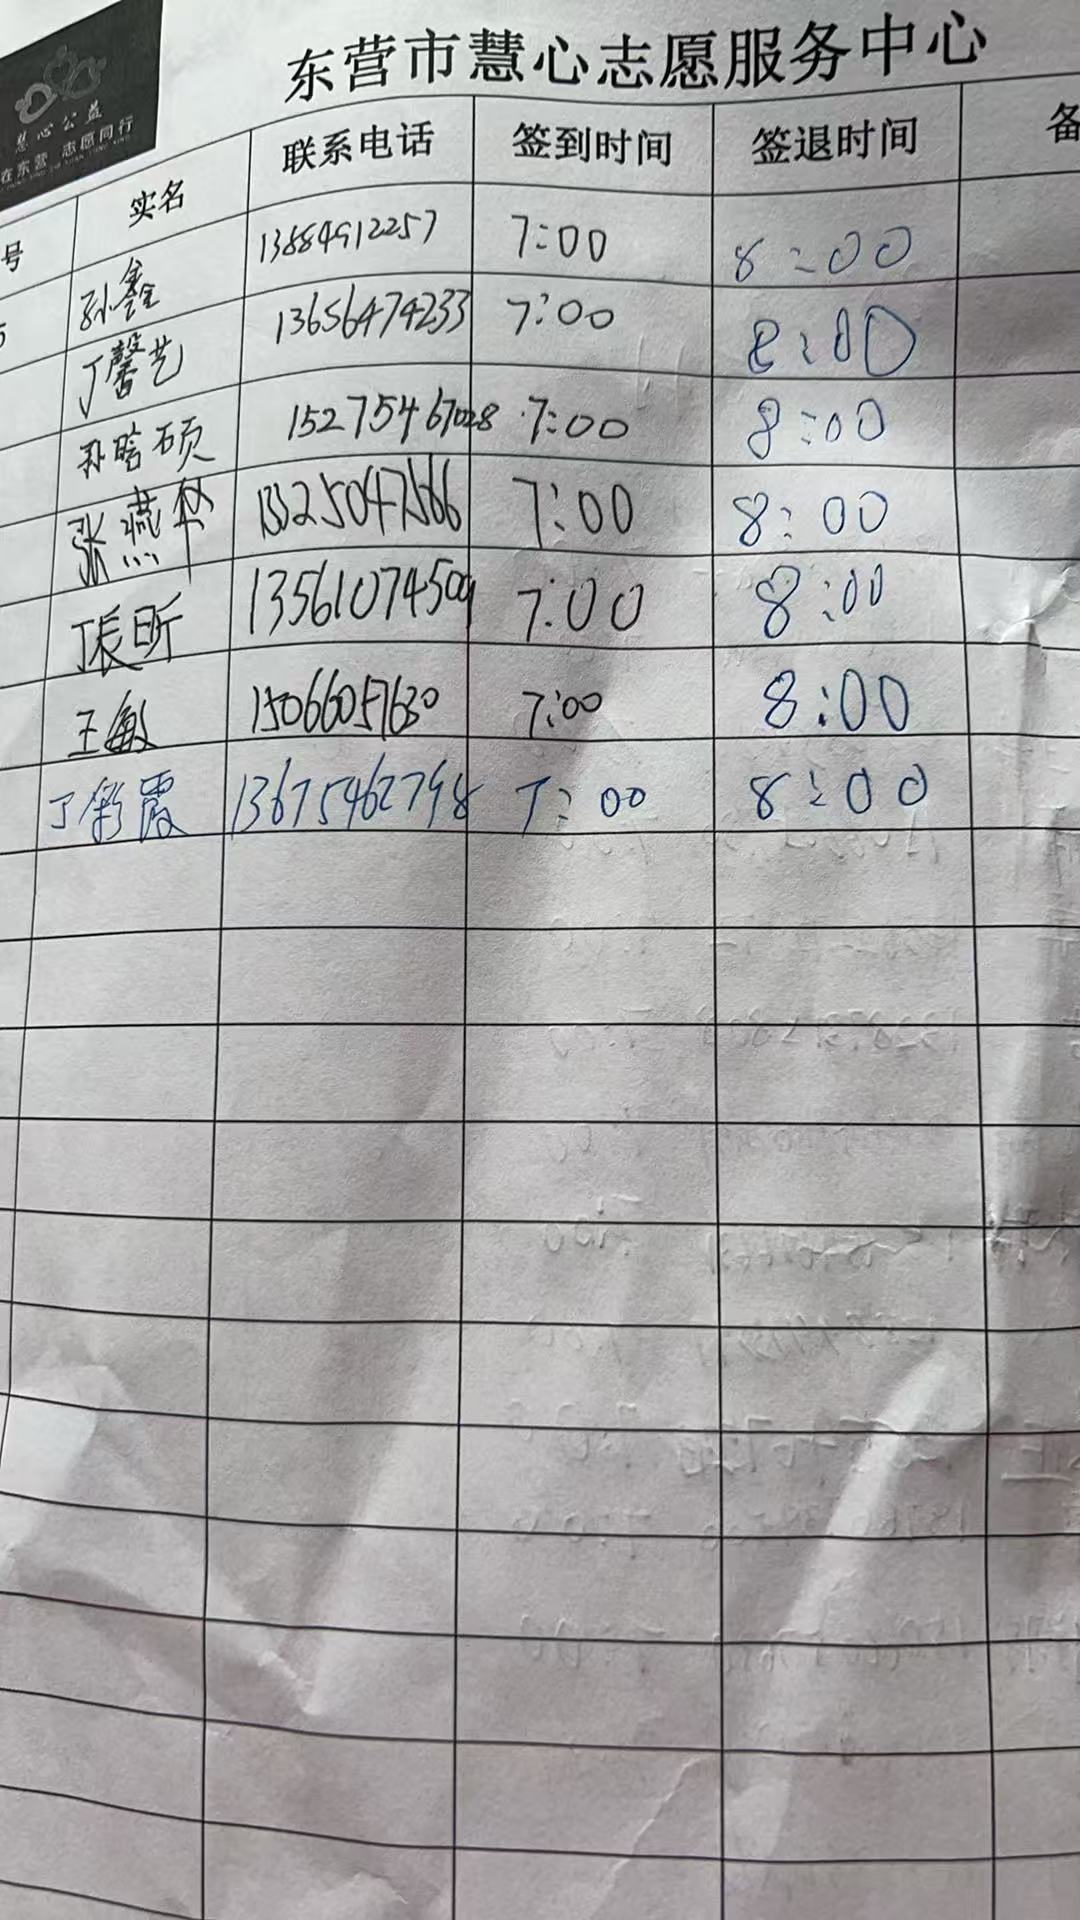 东营市慧心志愿服务中心
慧心公益
在东营 志愿同行
号 实名 联系电话 签到时间 签退时间 备
孙鑫 13884912257 7:00 8:00
丁馨艺 13656474233 7:00 8:00
孙晗硕 15275467028 7:00 8:00
张燕 7:00 8:00
张昕 13561074509 7:00 8:00
王敏 15066057630 7:00 8:00
丁彩霞 13675462798 7:00 8:00